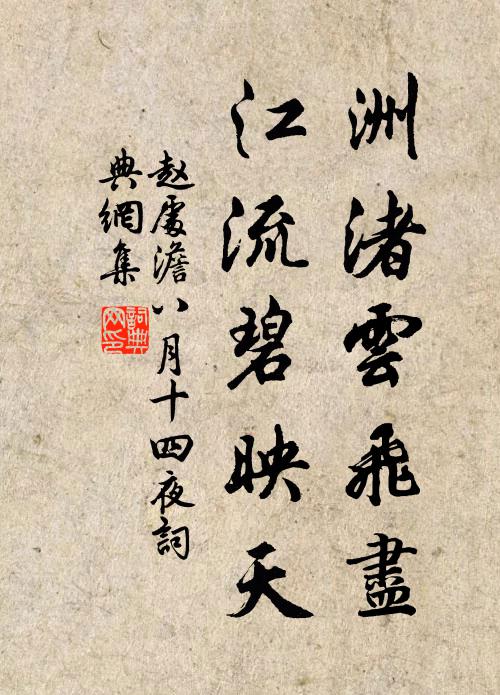 洲渚雲飛盡
江流碧映天
赵處澹八月十四夜詞
典網集
詞典
网印